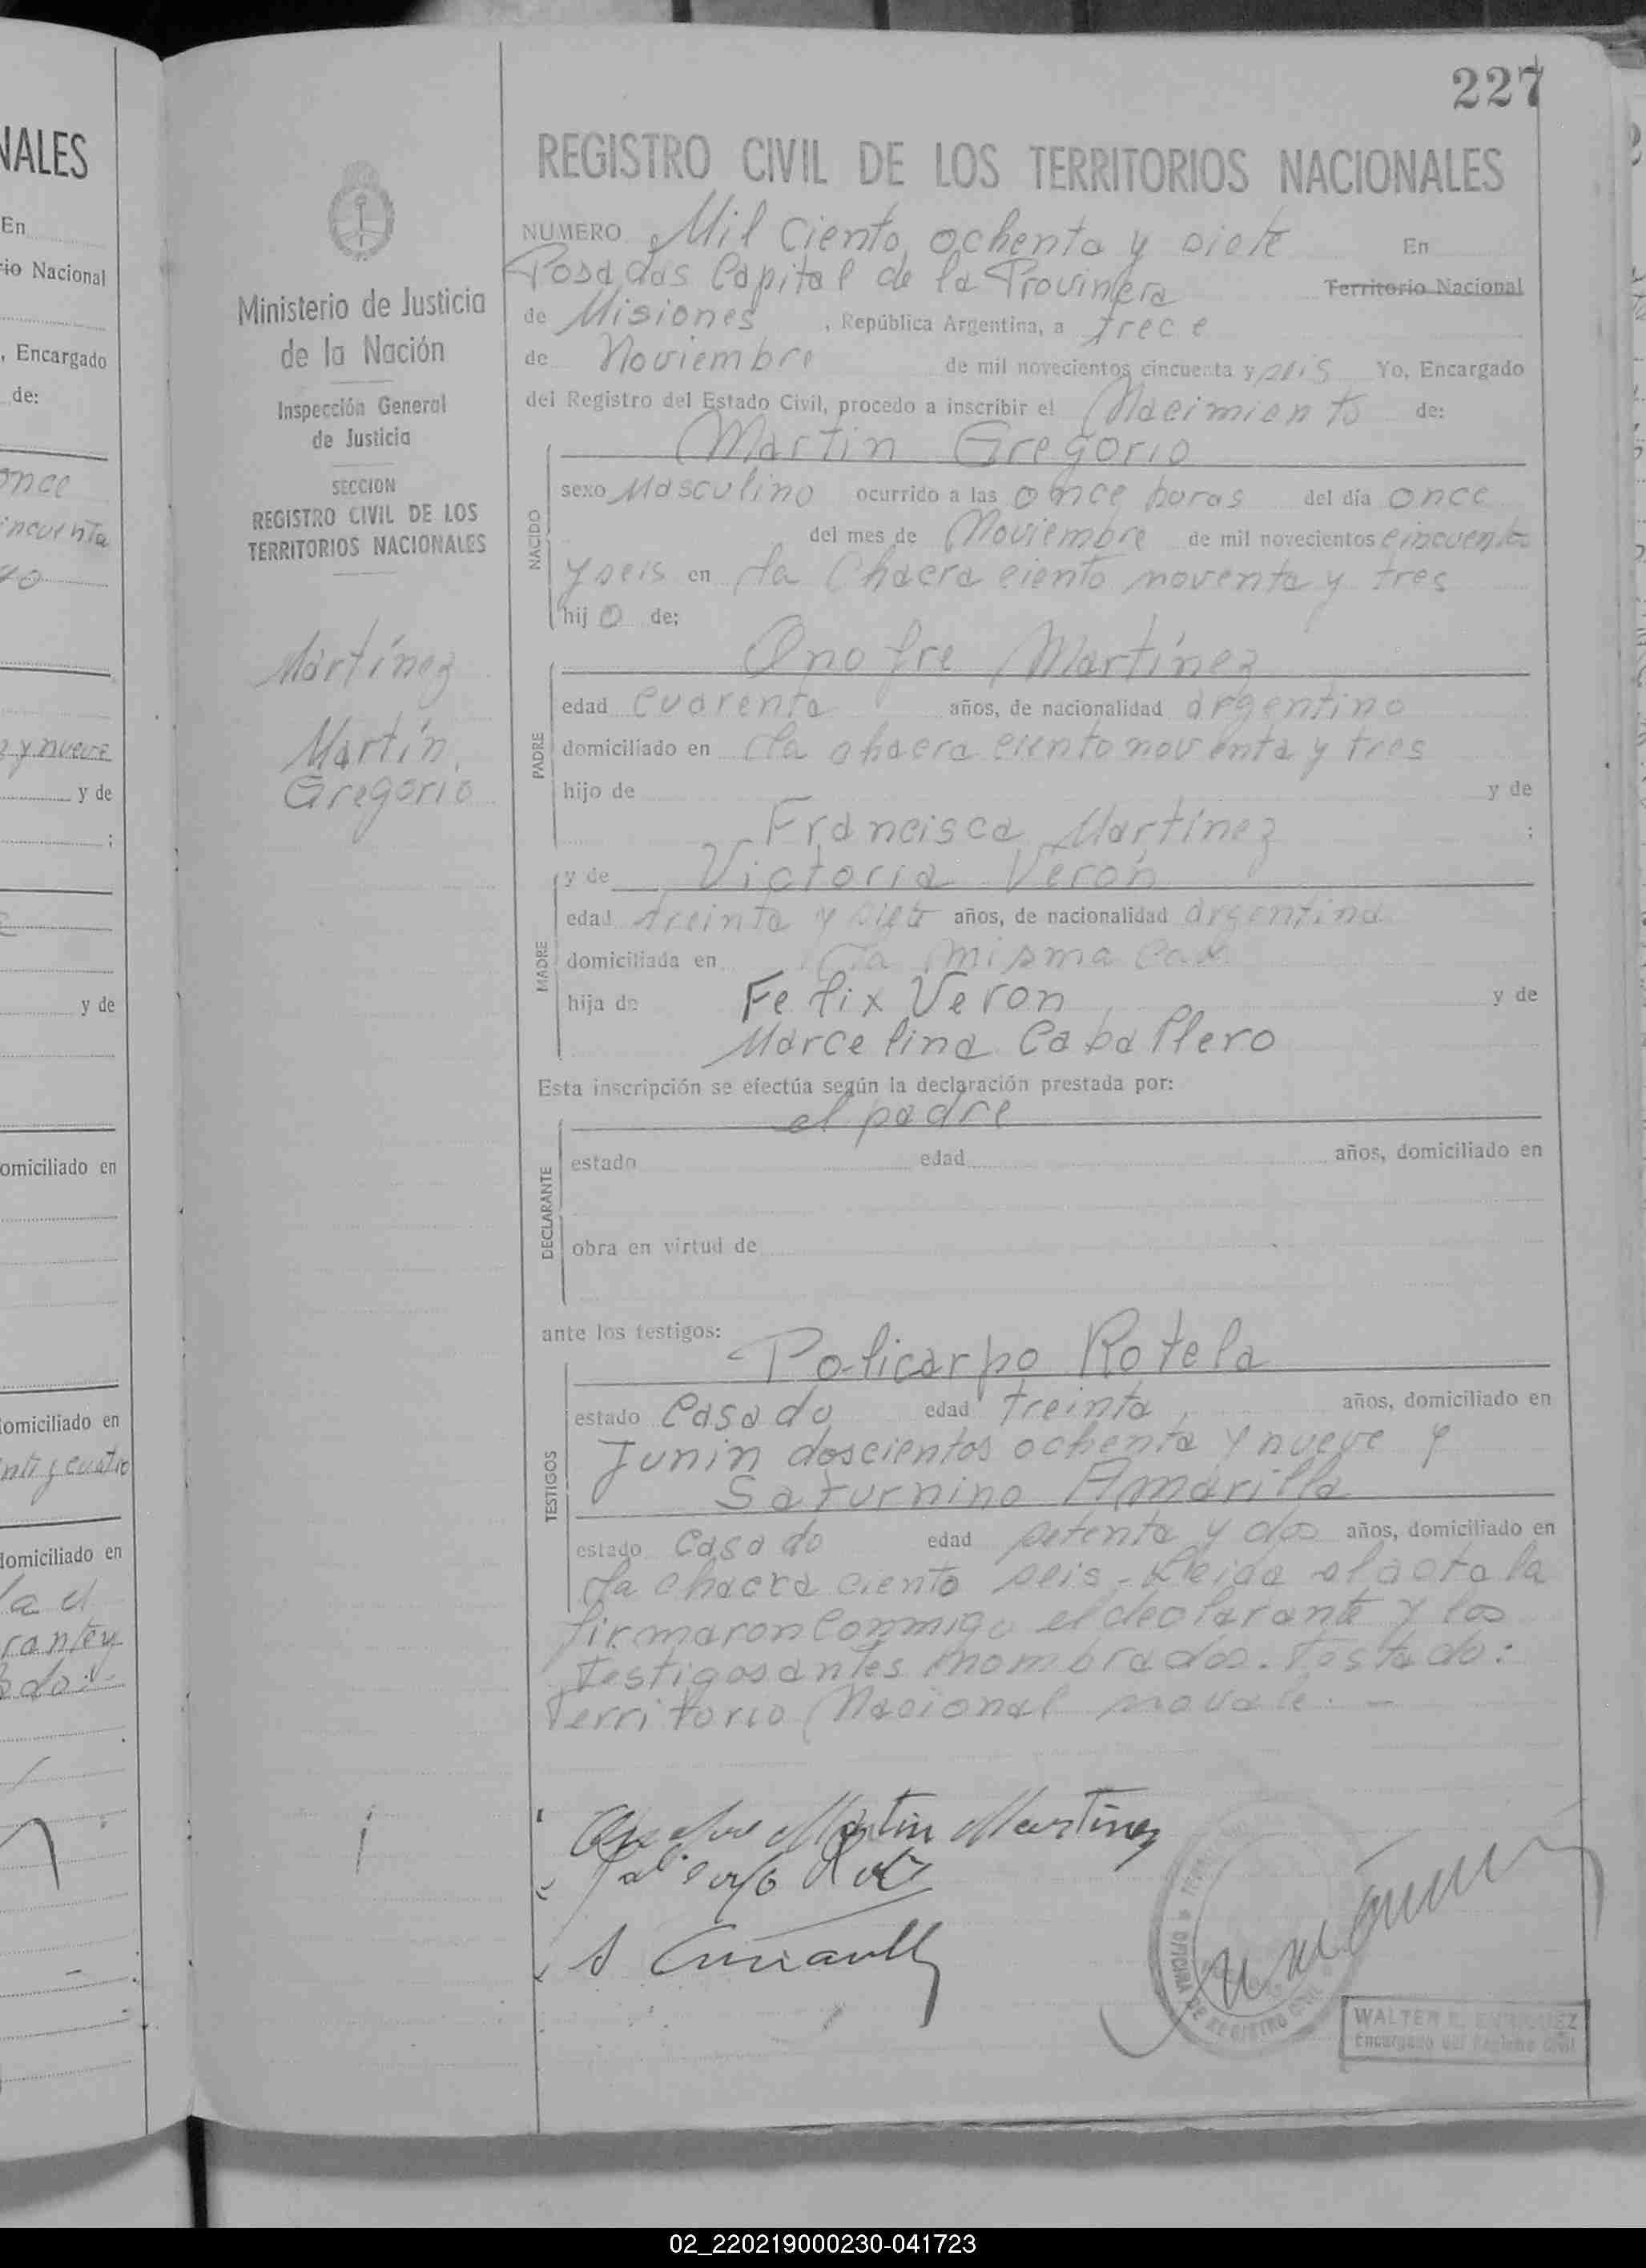 NALES
En
rio Nacional
, Encargado
de:
once
incuenta
y nueve
y de
;
y de
omiciliado en
domiciliado en
domiciliado en
227
Ministerio de Justicia
de la Nación
Inspección General
de Justicia
SECCION
REGISTRO CIVIL DE LOS
TERRITORIOS NACIONALES
Martínez
Martín
Gregorio
REGISTRO CIVIL DE LOS TERRITORIOS NACIONALES
NUMERO Mil Ciento ochenta y siete En
Posadas Capital de la Provincia Territorio Nacional
de Misiones , República Argentina, a trece
de Noviembre de mil novecientos cincuenta y seis Yo, Encargado
del Registro del Estado Civil, procedo a inscribir el Nacimiento de:
Martin Gregorio
NACIDO
sexo Masculino ocurrido a las once horas del día once
del mes de Noviembre de mil novecientos cincuenta
y seis en la Chacra ciento noventa y tres
hijo de:
Onofre Martínez
PADRE
edad cuarenta años, de nacionalidad argentino
domiciliado en la chacra ciento noventa y tres
hijo de y de
Francisca Martínez ;
y de Victoria Verón
MADRE
edad treinta y siete años, de nacionalidad argentina
domiciliada en la misma casa
hija de Felix Veron y de
Marcelina Caballero
Esta inscripción se efectúa según la declaración prestada por:
el padre
DECLARANTE
estado edad años, domiciliado en
obra en virtud de
ante los testigos:
Policarpo Rotela
TESTIGOS
estado Casado edad treinta años, domiciliado en
Junin doscientos ochenta y nueve y
Saturnino Amarilla
estado Casado edad setenta y dos años, domiciliado en
la chacra ciento seis - Leida el acta la
firmaron conmigo el declarante y los
testigos antes nombrados. Testado:
Territorio Nacional no vale. -
Onofre Martin Martinez
OFICINA DE REGISTRO CIVIL
WALTER E. ENRIQUEZ
Encargado del Registro Civil
02_220219000230-041723